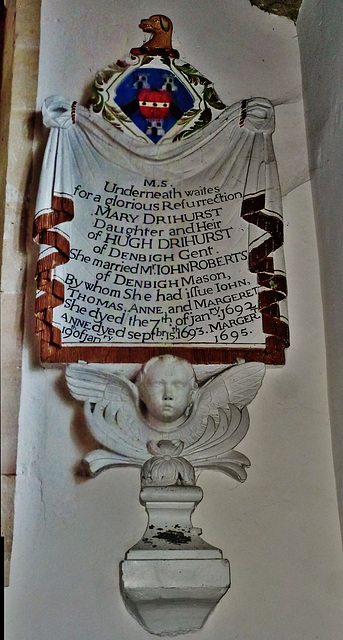 M.S.
Underneath waites
for a glorious Resurrection
MARY DRIHURST
Daughter and Heir
of HUGH DRIHURST
of DENBIGH Gent.
She married Mr. IOHN ROBERTS
of DENBIGH Mason,
By whom She had issue IOHN,
THOMAS, ANNE, and MARGERET
She dyed the 7th of janry 1692
ANNE dyed septr 15th 1693. MARGER:
19 of jan 1695.